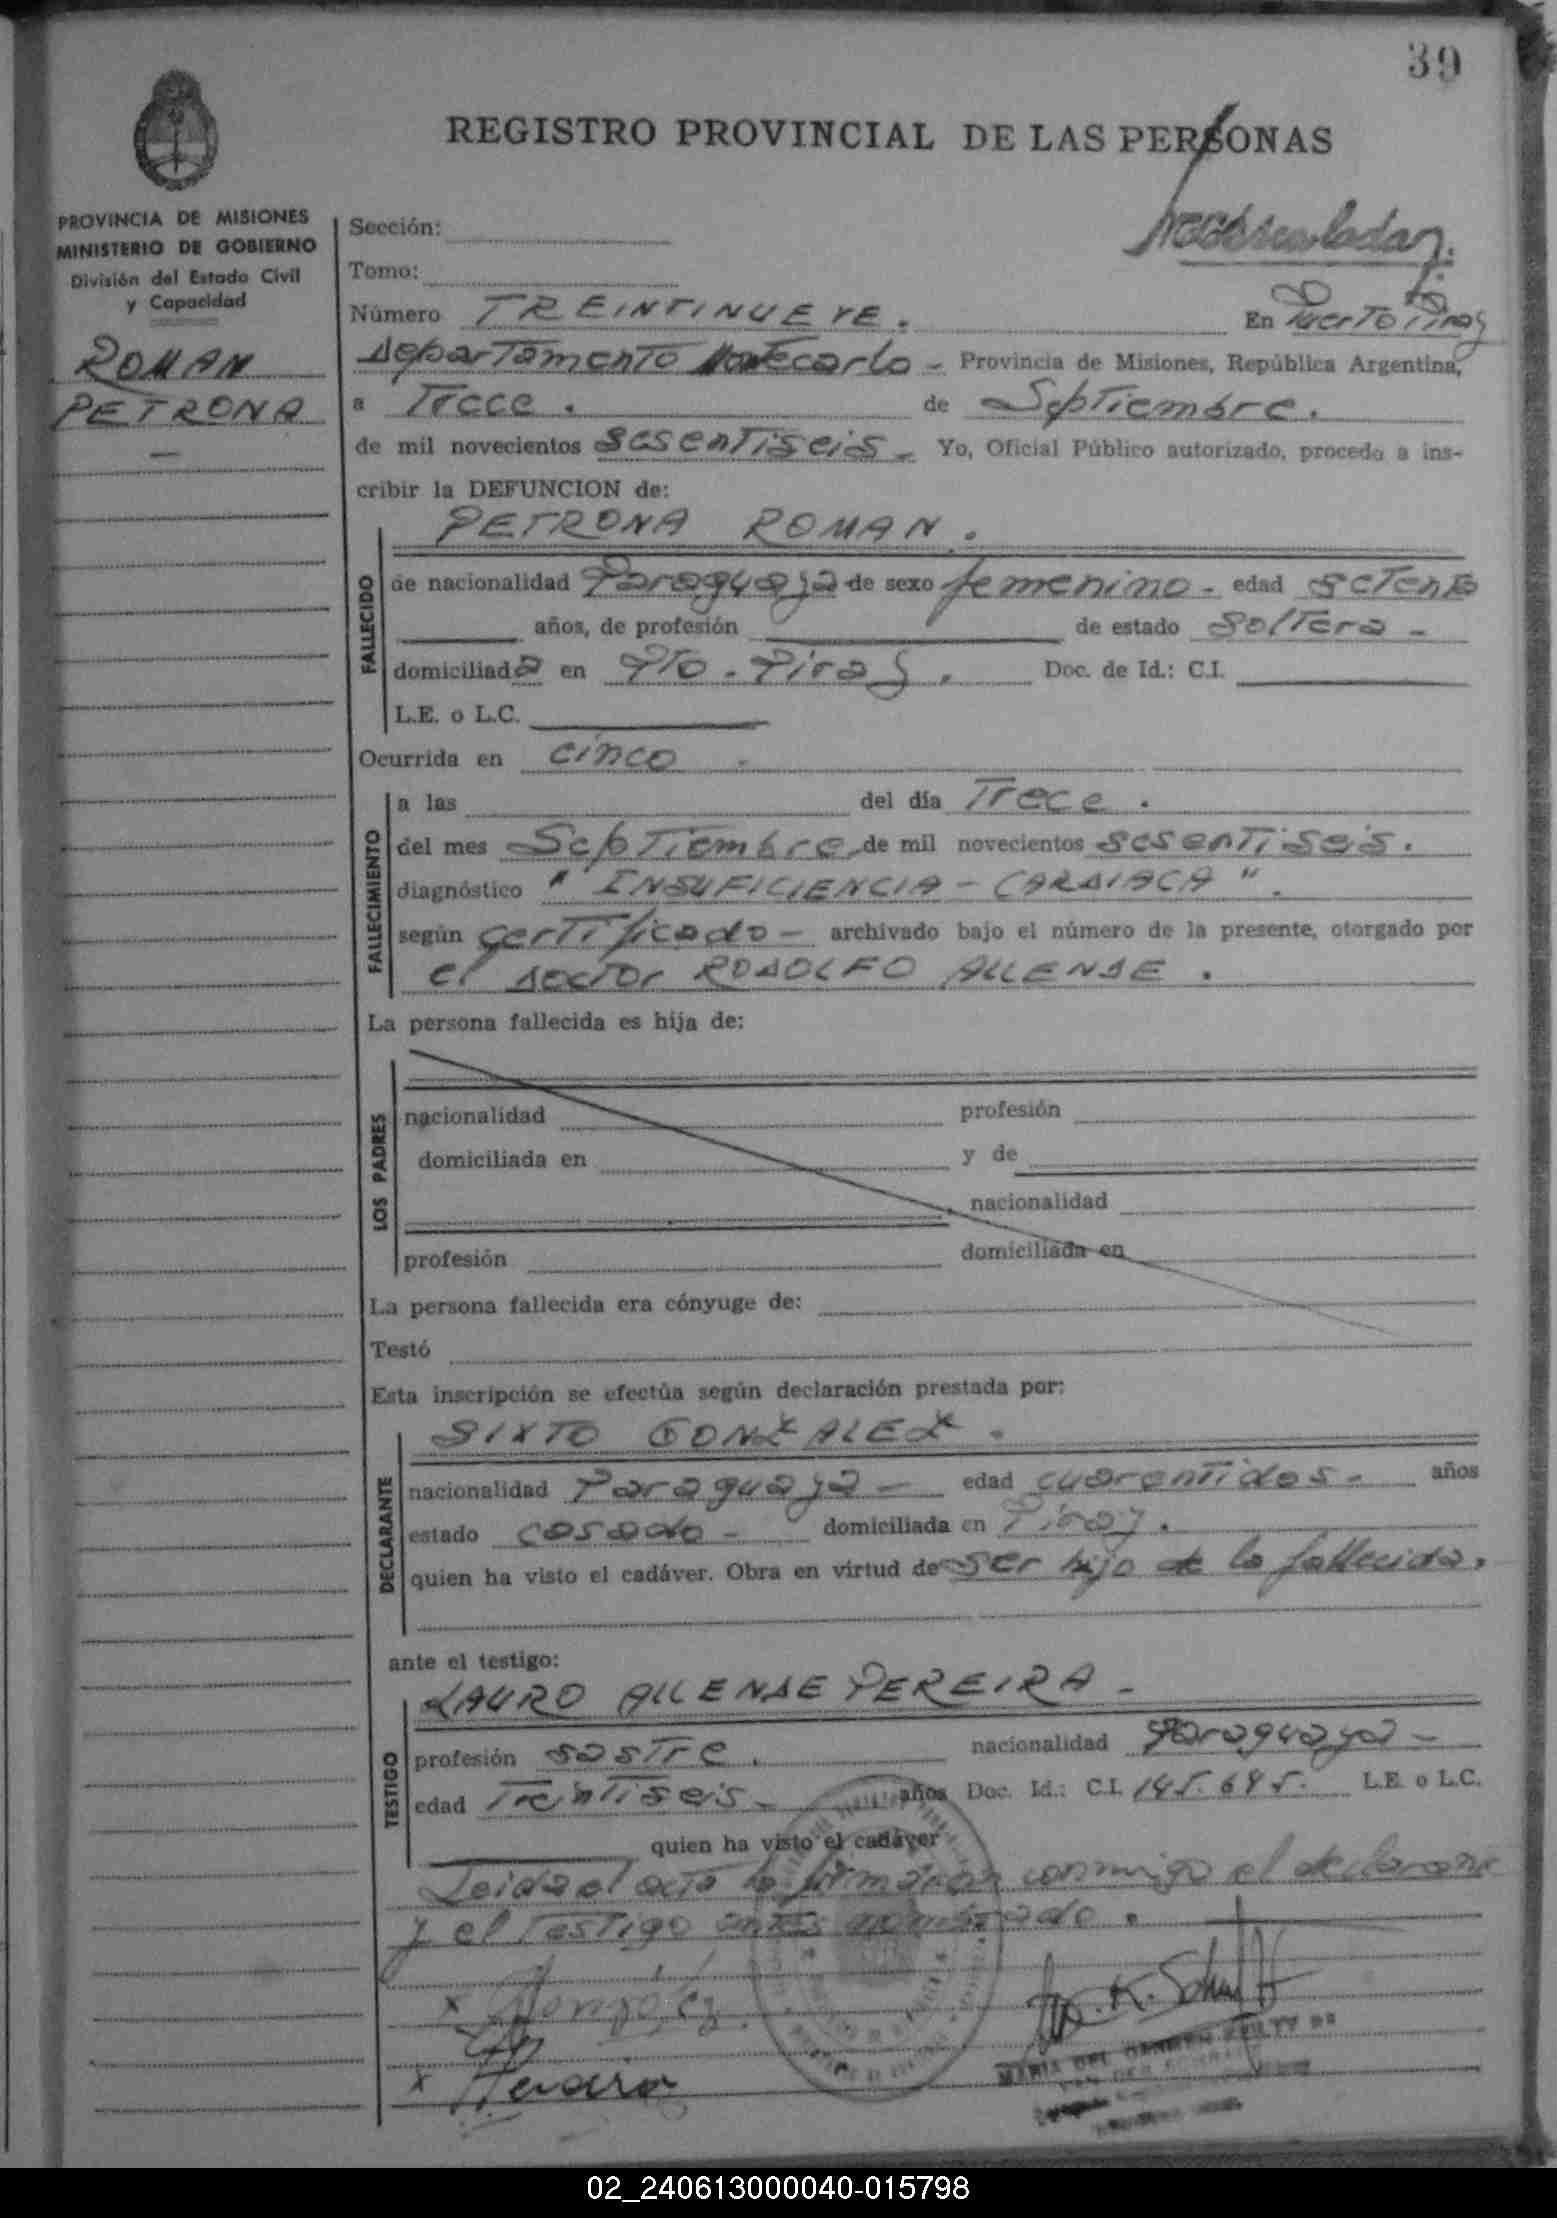 39
REGISTRO PROVINCIAL DE LAS PERSONAS
PROVINCIA DE MISIONES
MINISTERIO DE GOBIERNO
División del Estado Civil
y Capacidad
ROMAN
PETRONA
Sección:
Tomo:
Número TREINTINUEVE. En Puerto Piray
departamento Montecarlo - Provincia de Misiones, República Argentina,
a Trece. de Septiembre.
de mil novecientos sesentiseis - Yo, Oficial Público autorizado, procedo a ins-
cribir la DEFUNCION de:
PETRONA ROMAN.
FALLECIDO
de nacionalidad Paraguaya de sexo femenino - edad setenta
años, de profesión de estado soltera -
domiciliada en Pto. Piray. Doc. de Id.: C.I.
L.E. o L.C.
Ocurrida en cinco
FALLECIMIENTO
a las del día Trece.
del mes Septiembre de mil novecientos sesentiseis.
diagnóstico " INSUFICIENCIA - CARDIACA ".
según certificado - archivado bajo el número de la presente, otorgado por
el doctor RODOLFO ALLENDE.
La persona fallecida es hija de:
LOS PADRES
nacionalidad profesión
domiciliada en y de
nacionalidad
profesión domiciliada en
La persona fallecida era cónyuge de:
Testó
Esta inscripción se efectúa según declaración prestada por:
SIXTO GONZALEZ.
DECLARANTE
nacionalidad Paraguaya - edad cuarentidos - años
estado casado - domiciliada en Piray.
quien ha visto el cadáver. Obra en virtud de ser hijo de la fallecida.
ante el testigo:
LAURO ALLENDE PEREIRA -
TESTIGO
profesión sastre. nacionalidad Paraguaya -
edad Treintiseis - años Doc. Id.: C.I. 145.645. L.E. o L.C.
quien ha visto el cadáver
Leida el acta la firmaron conmigo el declarante
y el testigo antes nombrado.
x González
x Pereira
MARIA DEL CARMEN
02_240613000040-015798